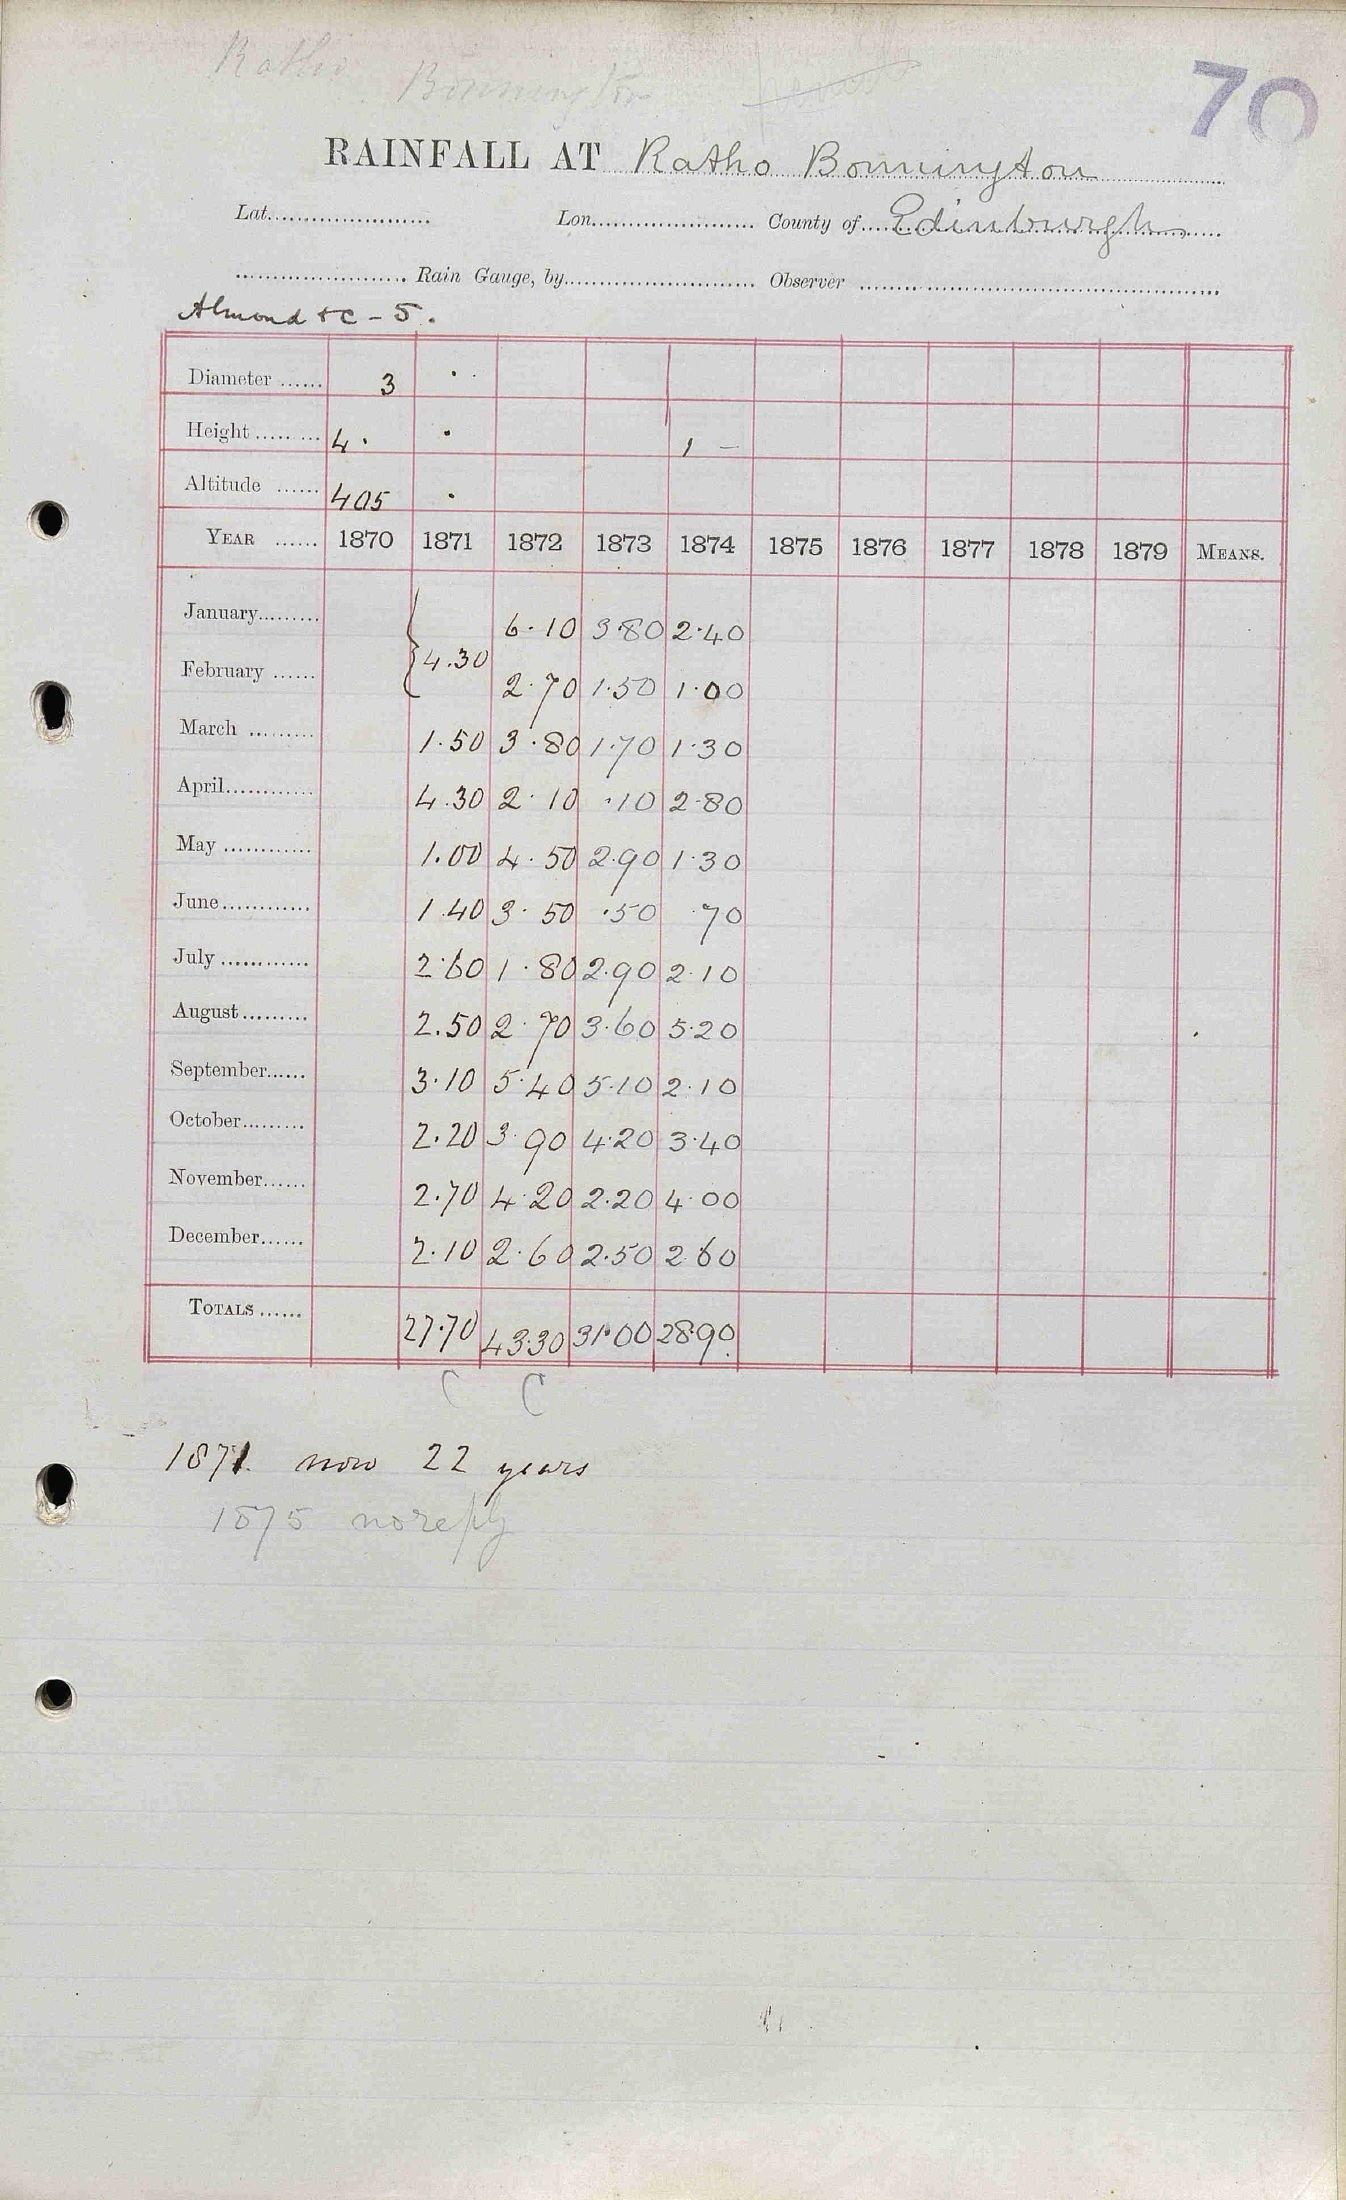 Ratho Bonnington
70
RAINFALL AT Ratho Bonnington
Lat. Lon. County of Edinburgh
Rain Gauge, by Observer
Almond &c - 5.
Diameter 3 ·
Height 4 · · 1 —
Altitude 405 ·
YEAR 1870 1871 1872 1873 1874 1875 1876 1877 1878 1879 MEANS.
January 6·10 3·80 2·40
{4.30
February 2·70 1·50 1·00
March 1·50 3·80 1·70 1·30
April 4.30 2·10 ·10 2·80
May 1.00 4·50 2·90 1·30
June 1.40 3·50 ·50 ·70
July 2·60 1·80 2·90 2·10
August 2.50 2·70 3·60 5·20
September 3·10 5·40 5·10 2·10
October 2.20 3·90 4·20 3·40
November 2·70 4·20 2·20 4·00
December 2·10 2·60 2·50 2·60
TOTALS 27·70 43·30 31·00 28·90
C C
1871. now 22 years
1875 no reply